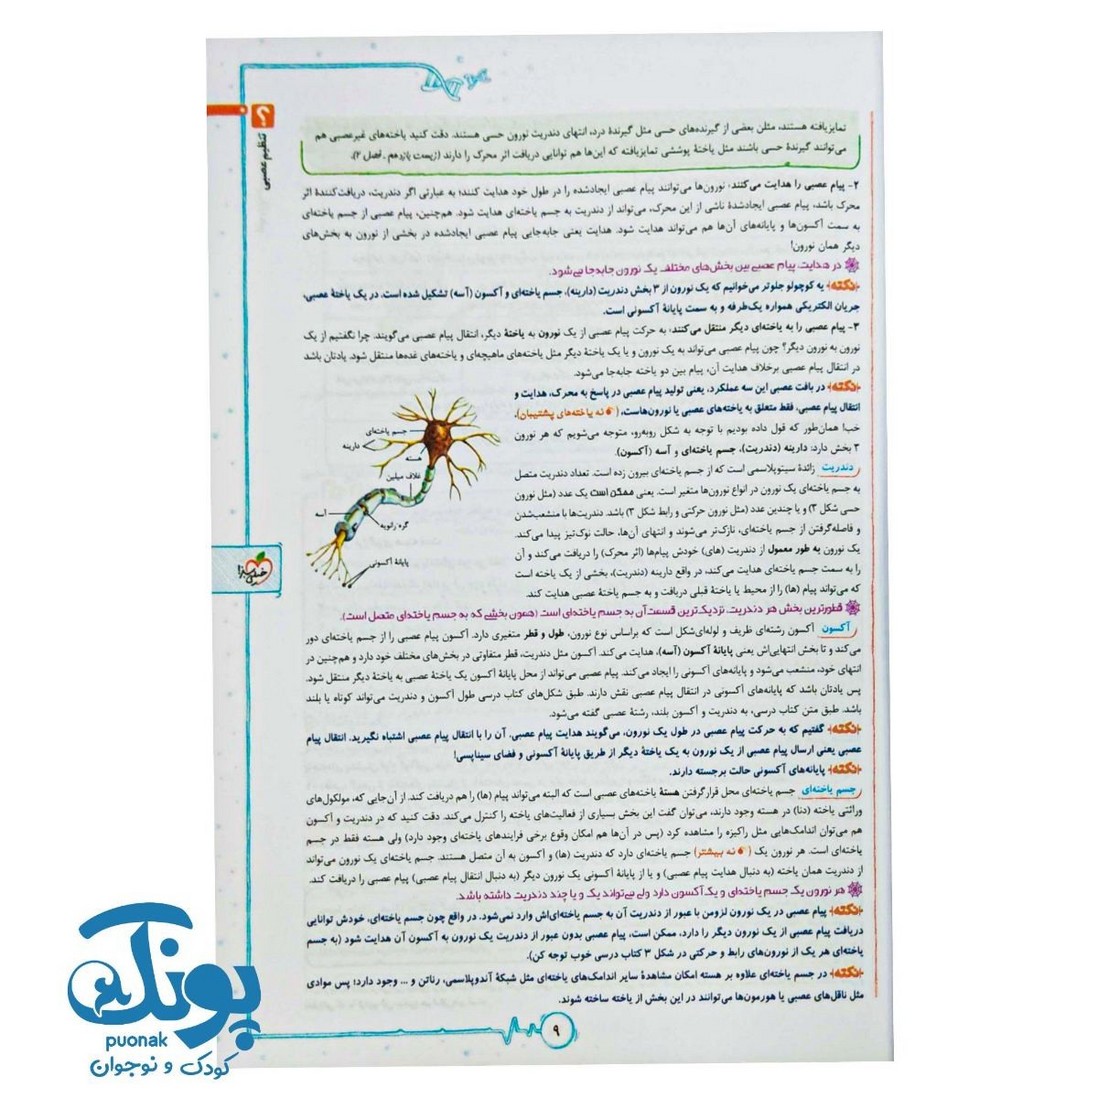 تنظیم عصبی
تمایزیافته هستند، مثلن بعضی از گیرنده‌های حسی مثل گیرندهٔ درد، انتهای دندریت نورون حسی هستند. دقت کنید یاخته‌های غیرعصبی هم
می‌توانند گیرندهٔ حسی باشند مثل یاختهٔ پوششی تمایزیافته که این‌ها هم توانایی دریافت اثر محرک را دارند (زیست یازدهم ـ فصل ۲).
۲- پیام عصبی را هدایت می‌کنند: نورون‌ها می‌توانند پیام عصبی ایجادشده را در طول خود هدایت کنند؛ به عبارتی اگر دندریت، دریافت‌کنندهٔ اثر
محرک باشد، پیام عصبی ایجادشدهٔ ناشی از این محرک، می‌تواند از دندریت به جسم یاخته‌ای هدایت شود. هم‌چنین، پیام عصبی از جسم یاخته‌ای
به سمت آکسون‌ها و پایانه‌های آن‌ها هم می‌تواند هدایت شود. هدایت یعنی جابه‌جایی پیام عصبی ایجادشده در بخشی از نورون به بخش‌های
دیگر همان نورون!
در هدایت پیام عصبی بین بخش‌های مختلف یک نورون جابه‌جا می‌شود.
نکته یه کوچولو جلوتر می‌خوانیم که یک نورون از ۳ بخش دندریت (دارینه)، جسم یاخته‌ای و آکسون (آسه) تشکیل شده است. در یک یاختهٔ عصبی،
جریان الکتریکی همواره یک‌طرفه و به سمت پایانهٔ آکسونی است.
۳- پیام عصبی را به یاخته‌ای دیگر منتقل می‌کنند: به حرکت پیام عصبی از یک نورون به یاختهٔ دیگر، انتقال پیام عصبی می‌گویند. چرا نگفتیم از یک
نورون به نورون دیگر؟ چون پیام عصبی می‌تواند به یک نورون و یا یک یاختهٔ دیگر مثل یاخته‌های ماهیچه‌ای و یاخته‌های غده‌ها منتقل شود. یادتان باشد
در انتقال پیام عصبی برخلاف هدایت آن، پیام بین دو یاخته جابه‌جا می‌شود.
نکته در بافت عصبی این سه عملکرد، یعنی تولید پیام عصبی در پاسخ به محرک، هدایت و
انتقال پیام عصبی، فقط متعلق به یاخته‌های عصبی یا نورون‌هاست، (نه یاخته‌های پشتیبان).
خب! همان‌طور که قول داده بودیم با توجه به شکل روبه‌رو، متوجه می‌شویم که هر نورون
۳ بخش دارد: دارینه (دندریت)، جسم یاخته‌ای و آسه (آکسون).
جسم یاخته‌ای
دارینه
هسته
غلاف میلین
آسه
گره رانویه
پایانهٔ آکسونی
دندریت زائدهٔ سیتوپلاسمی است که از جسم یاخته‌ای بیرون زده است. تعداد دندریت متصل
به جسم یاخته‌ای یک نورون در انواع نورون‌ها متغیر است. یعنی ممکن است یک عدد (مثل نورون
حسی شکل ۳) و یا چندین عدد (مثل نورون حرکتی و رابط شکل ۳) باشد. دندریت‌ها با منشعب‌شدن
و فاصله‌گرفتن از جسم یاخته‌ای، نازک‌تر می‌شوند و انتهای آن‌ها، حالت نوک‌تیز پیدا می‌کند.
یک نورون به طور معمول از دندریت (های) خودش پیام‌ها (اثر محرک) را دریافت می‌کند و آن
را به سمت جسم یاخته‌ای هدایت می‌کند، در واقع دارینه (دندریت)، بخشی از یک یاخته است
که می‌تواند پیام (ها) را از محیط یا یاختهٔ قبلی دریافت و به جسم یاختهٔ عصبی هدایت کند.
قطورترین بخش هر دندریت، نزدیک‌ترین قسمت آن به جسم یاخته‌ای است (همون بخشی که به جسم یاخته‌ای متصل است).
آکسون آکسون رشته‌ای ظریف و لوله‌ای‌شکل است که براساس نوع نورون، طول و قطر متغیری دارد. آکسون پیام عصبی را از جسم یاخته‌ای دور
می‌کند و تا بخش انتهایی‌اش یعنی پایانهٔ آکسون (آسه)، هدایت می‌کند. آکسون مثل دندریت، قطر متفاوتی در بخش‌های مختلف خود دارد و هم‌چنین در
انتهای خود، منشعب می‌شود و پایانه‌های آکسونی را ایجاد می‌کند. پیام عصبی می‌تواند از محل پایانهٔ آکسون یک یاختهٔ عصبی به یاختهٔ دیگر منتقل شود.
پس یادتان باشد که پایانه‌های آکسونی در انتقال پیام عصبی نقش دارند. طبق شکل‌های کتاب درسی طول آکسون و دندریت می‌تواند کوتاه یا بلند
باشد. طبق متن کتاب درسی، به دندریت و آکسون بلند، رشتهٔ عصبی گفته می‌شود.
نکته گفتیم که به حرکت پیام عصبی در طول یک نورون، می‌گویند هدایت پیام عصبی، آن را با انتقال پیام عصبی اشتباه نگیرید. انتقال پیام
عصبی یعنی ارسال پیام عصبی از یک نورون به یک یاختهٔ دیگر از طریق پایانهٔ آکسونی و فضای سیناپسی!
نکته پایانه‌های آکسونی حالت برجسته دارند.
جسم یاخته‌ای جسم یاخته‌ای محل قرارگرفتن هستهٔ یاخته‌های عصبی است که البته می‌تواند پیام (ها) را هم دریافت کند. از آن‌جایی که، مولکول‌های
وراثتی یاخته (دنا) در هسته وجود دارند، می‌توان گفت این بخش بسیاری از فعالیت‌های یاخته را کنترل می‌کند. دقت کنید که در دندریت و آکسون
هم می‌توان اندامک‌هایی مثل راکیزه را مشاهده کرد (پس در آن‌ها هم امکان وقوع برخی فرایندهای یاخته‌ای وجود دارد) ولی هسته فقط در جسم
یاخته‌ای است. هر نورون یک (نه بیشتر) جسم یاخته‌ای دارد که دندریت (ها) و آکسون به آن متصل هستند. جسم یاخته‌ای یک نورون می‌تواند
از دندریت همان یاخته (به دنبال هدایت پیام عصبی) و یا از پایانهٔ آکسونی یک نورون دیگر (به دنبال انتقال پیام عصبی) پیام عصبی را دریافت کند.
هر نورون یک جسم یاخته‌ای و یک آکسون دارد ولی می‌تواند یک و یا چند دندریت داشته باشد.
نکته پیام عصبی در یک نورون لزومن با عبور از دندریت آن به جسم یاخته‌ای‌اش وارد نمی‌شود. در واقع چون جسم یاخته‌ای، خودش توانایی
دریافت پیام عصبی از یک نورون دیگر را دارد، ممکن است، پیام عصبی بدون عبور از دندریت یک نورون به آکسون آن هدایت شود (به جسم
یاخته‌ای هر یک از نورون‌های رابط و حرکتی در شکل ۳ کتاب درسی خوب توجه کن).
نکته در جسم یاخته‌ای علاوه بر هسته امکان مشاهدهٔ سایر اندامک‌های یاخته‌ای مثل شبکهٔ آندوپلاسمی، رناتن و ... وجود دارد؛ پس موادی
مثل ناقل‌های عصبی یا هورمون‌ها می‌توانند در این بخش از یاخته ساخته شوند.
۹
خیلی سبز
پونک
puonak
کودک و نوجوان